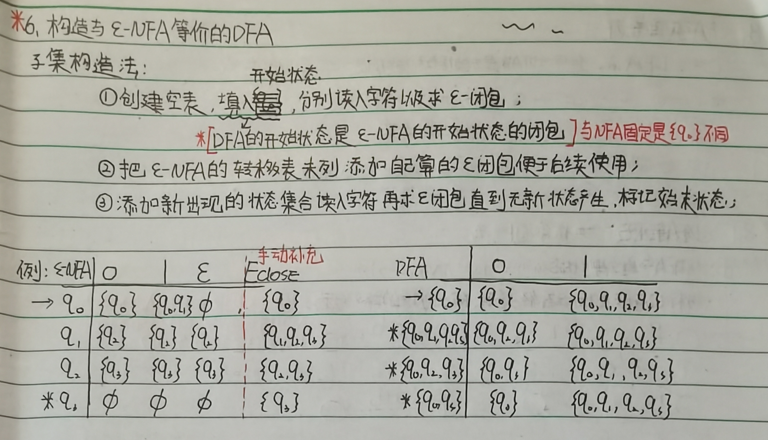 *6. 构造与 ε-NFA等价的DFA
子集构造法:
开始状态
①创建空表,填入,分别读入字符以及求 ε-闭包;
*[DFA的开始状态是 ε-NFA的开始状态的闭包]与NFA固定是{q₀}不同
②把 ε-NFA的 转移表末列 添加自己算的ε闭包便于后续使用;
③添加新出现的状态集合读入字符再求ε闭包直到无新状态产生.标记始末状态;
手动补充
例: ε-NFA 0 1 ε ECLOSE DFA 0 1
→ q₀ {q₀} {q₀,q₁} ϕ {q₀} →{q₀} {q₀} {q₀,q₁,q₂,q₃}
q₁ {q₂} {q₂} {q₂} {q₁,q₂,q₃} *{q₀,q₁,q₂,q₃} {q₀,q₂,q₃} {q₀,q₁,q₂,q₃}
q₂ {q₃} {q₃} {q₃} {q₂,q₃} *{q₀,q₂,q₃} {q₀,q₃} {q₀,q₁,q₂,q₃}
*q₃ ϕ ϕ ϕ {q₃} *{q₀,q₃} {q₀} {q₀,q₁,q₂,q₃}